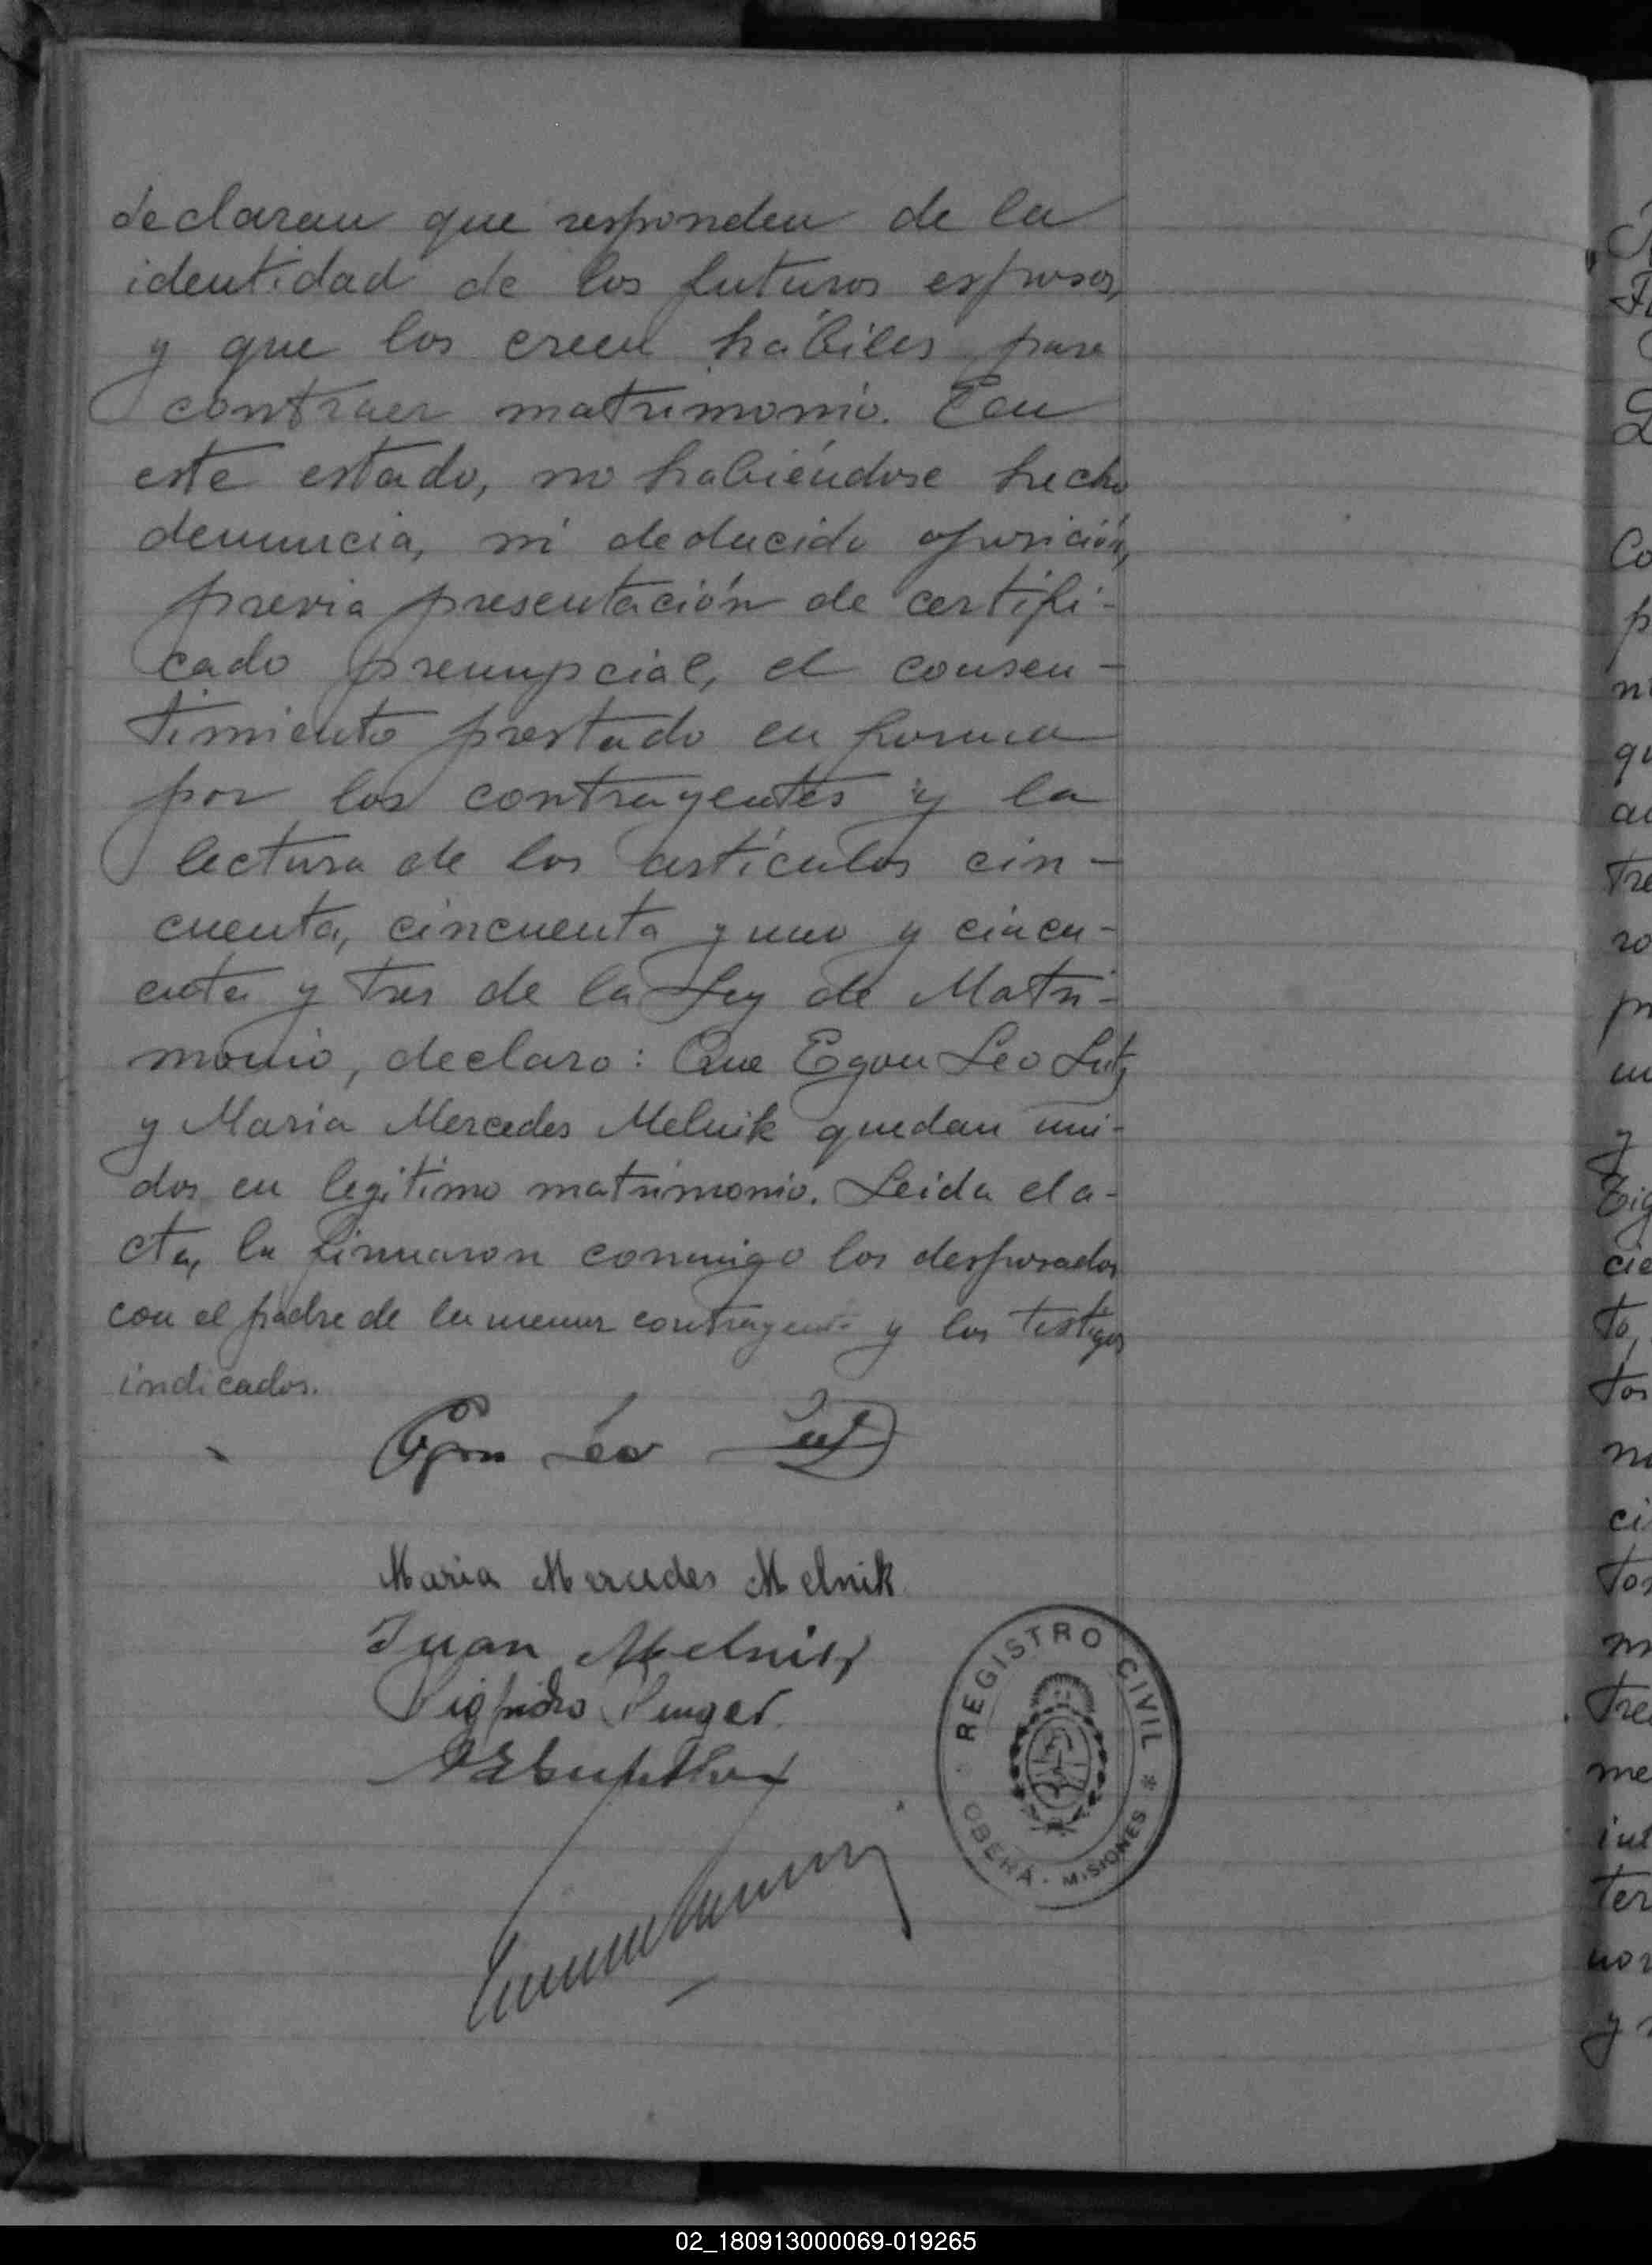 declaran que responden de la
identidad de los futuros esposos,
y que los creen hábiles para
contraer matrimonio. En
este estado, no habiéndose hecho
denuncia, ni deducido oposición,
previa presentación de certifi-
cado prenupcial, el consen-
timiento prestado en forma
por los contrayentes y la
lectura de los artículos cin-
cuenta, cincuenta y uno y cincu-
enta y tres de la Ley de Matri-
monio, declaro: Que Egon Leo Lutz
y Maria Mercedes Melnik quedan uni-
dos en legítimo matrimonio. Leida el a-
cta, la firmaron conmigo los desposados
con el padre de la menor contrayente y los testigos
indicados.
Egon Leo Lutz
Maria Mercedes Melnik
Juan Melnik
Sigfrido Singer
REGISTRO CIVIL
OBERÁ - MISIONES *
Co
p
ni
qu
au
Tre
ro
pr
un
y
cie
to,
tos
ci
tos
Tre
me
int
ter
nor
y
02_180913000069-019265